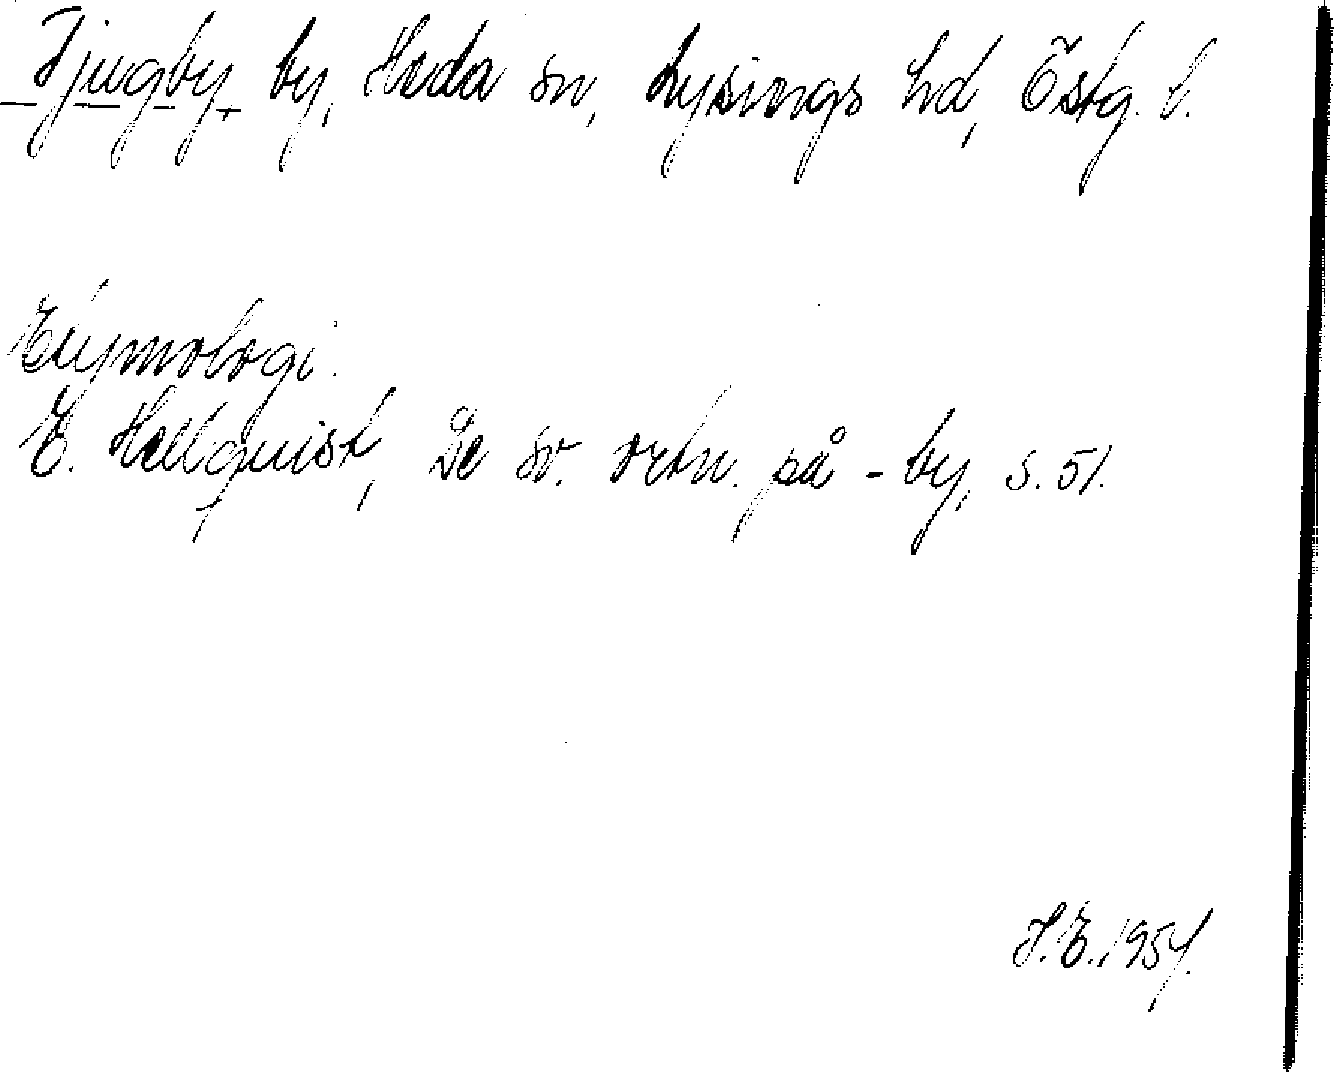 Tjugby by, Heda sn, Lysings hd, Östg. l.
Etymologi.
E. Hellquist, De sv. ortn. på -by, s. 51.
J.E. 1954.